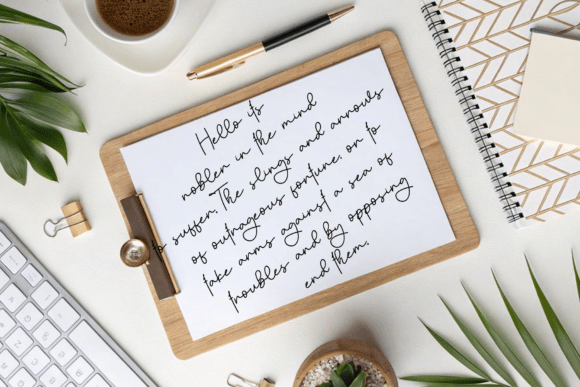 Hello its
nobler in the mind
to suffer. The slings and arrows
of outrageous fortune. or to
take arms against a sea of
troubles and By opposing
end them.